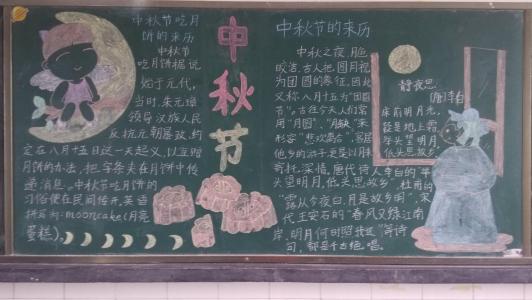 中秋节吃月
饼的来历
中秋节
吃月饼据说
始于元代,
当时,朱元璋
领导汉族人民
反抗元朝暴政,约
定在八月十五日这一天起义,以互赠
月饼的办法,把字条夹在月饼中传
递消息。中秋节吃月饼的
习俗便在民间传开,英语
拼写为:mooncake(月亮
蛋糕)。
中秋节
中秋节的来历
中秋之夜,月色
皎洁,古人把圆月视
为团圆的象征,因此
又称八月十五为“团圆
节”。古往今来,人们常
用“月圆”、“月缺”来
形容“悲欢离合”,客居
他乡的游子,更是以月来
寄托深情。唐代诗人李白的“举
头望明月,低头思故乡”,杜甫的
“露从今夜白,月是故乡明”,宋
代王安石的“春风又绿江南
岸,明月何时照我还”等诗
句,都是千古绝唱。
静夜思
(唐)李白
床前明月光,
疑是地上霜。
举头望明月,
低头思故乡。